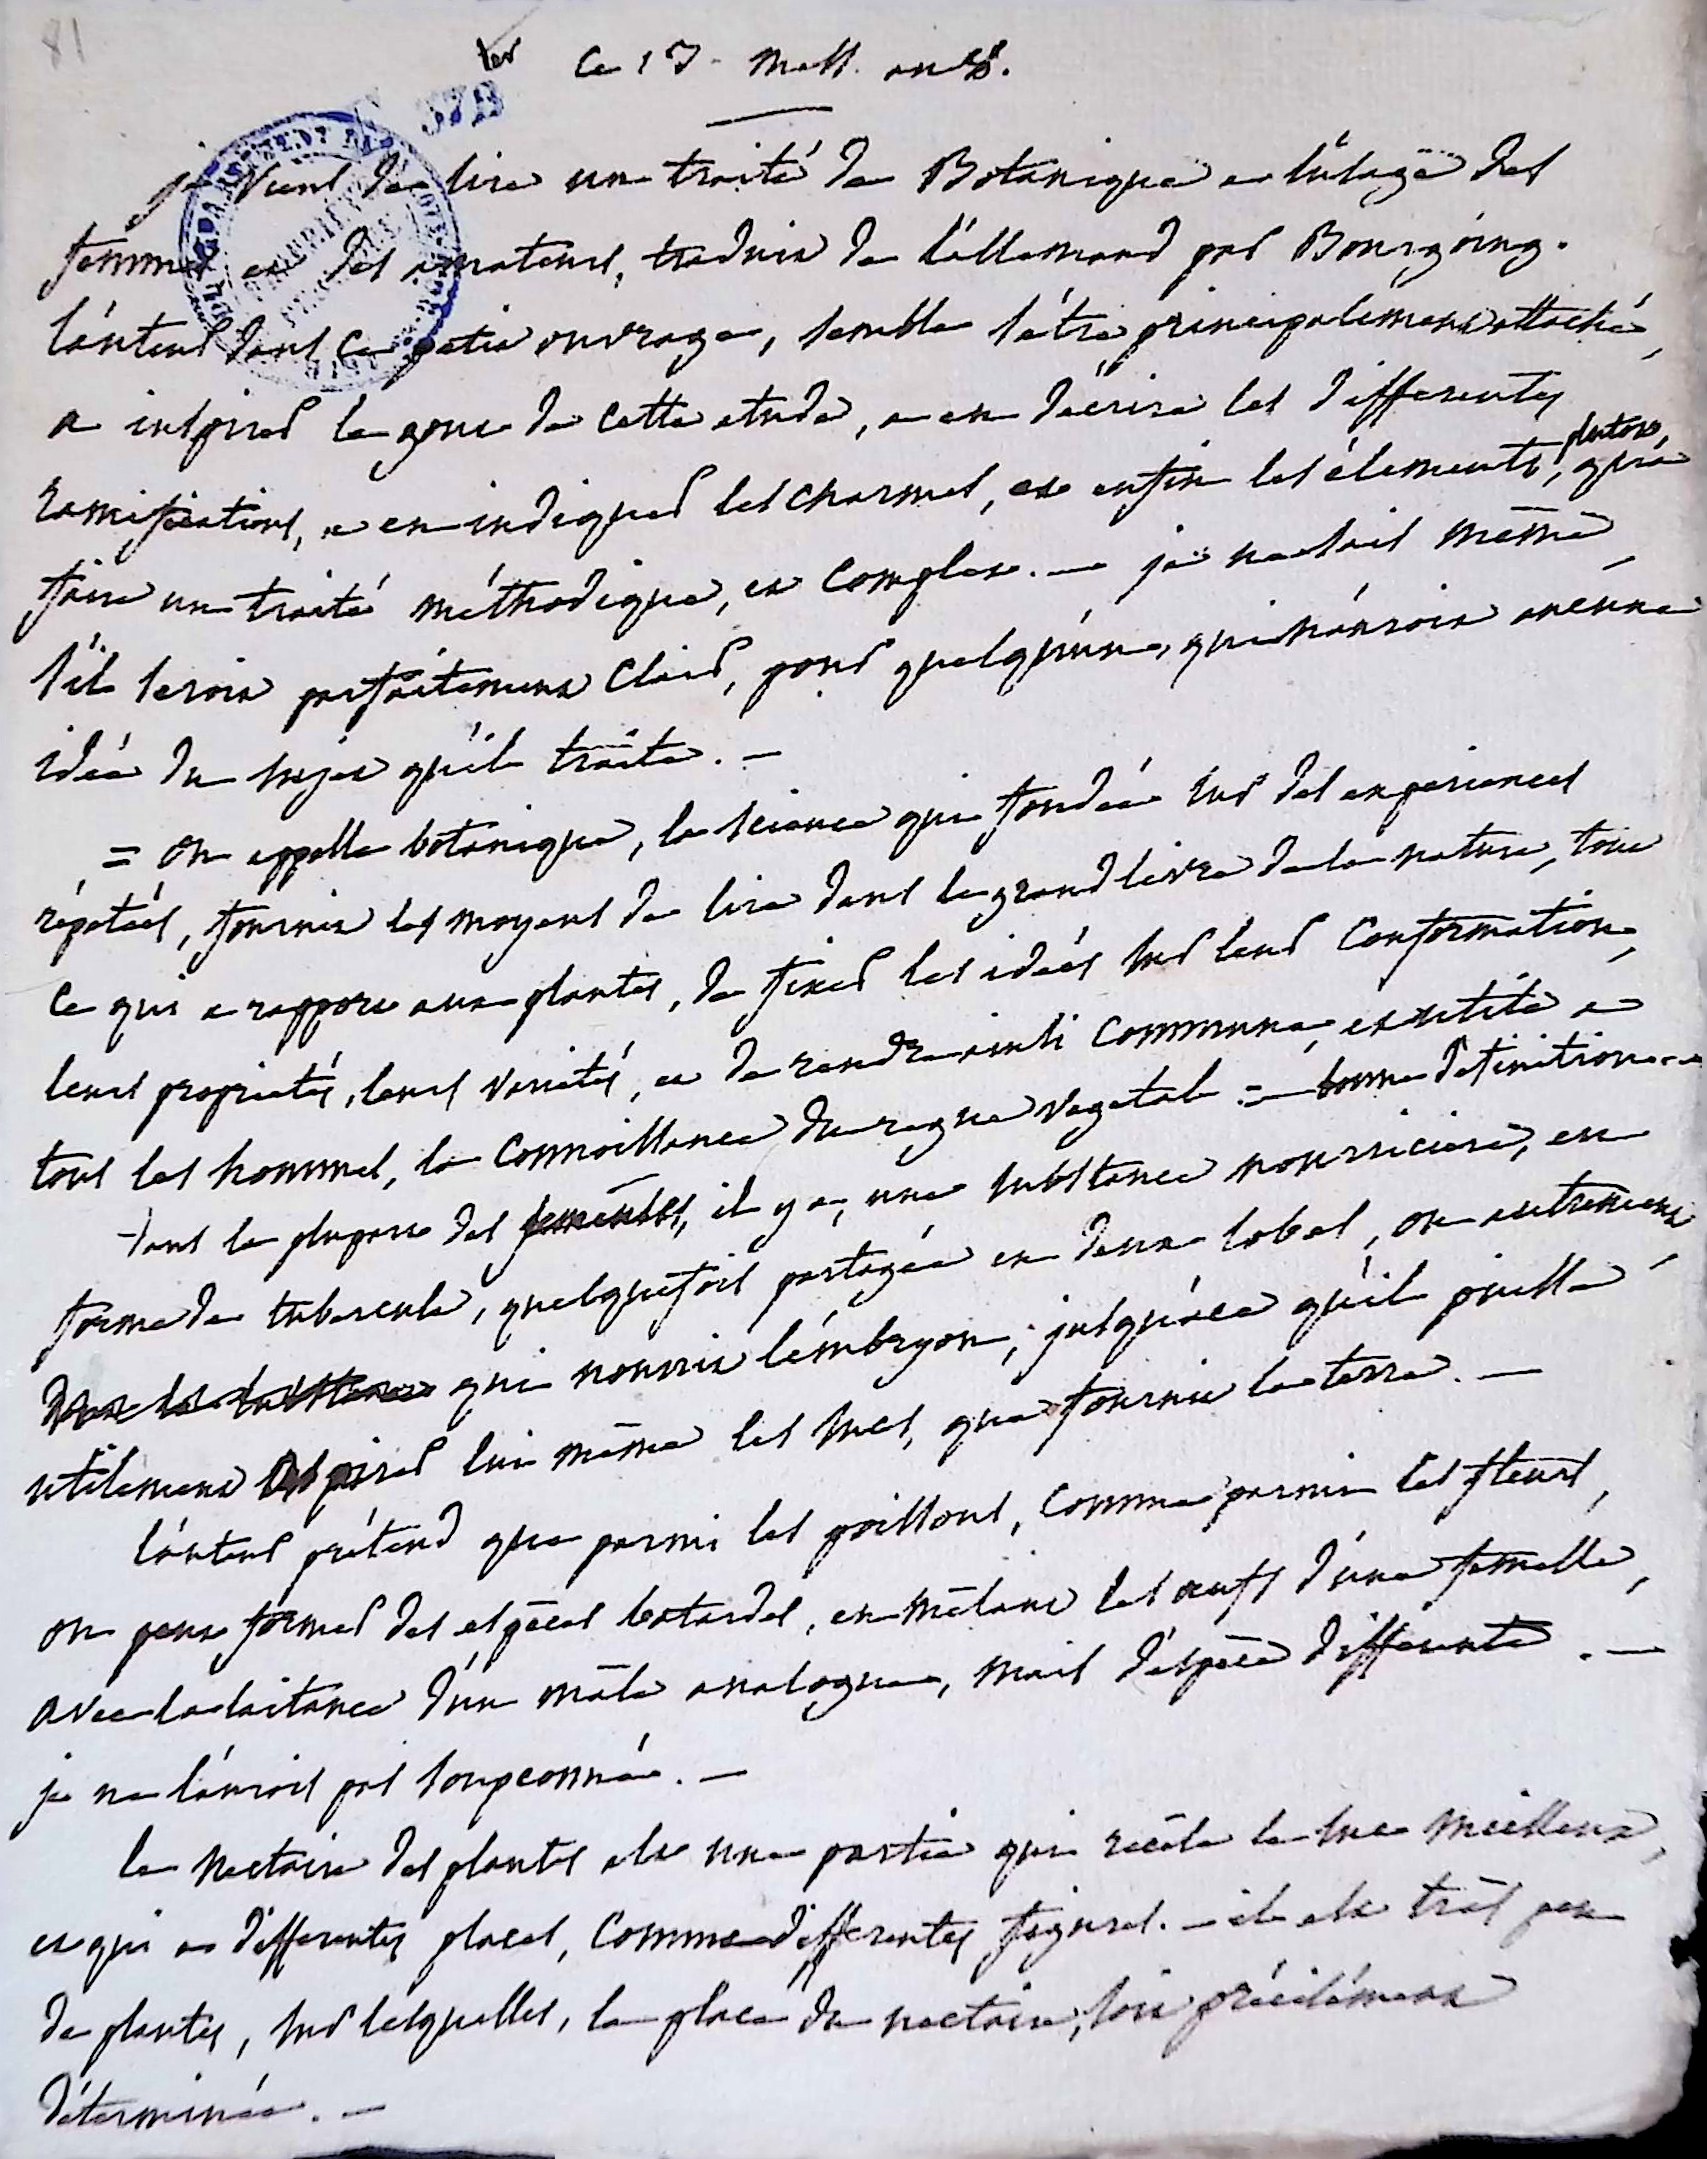 81
ter Ce 17 mess. an 8.
378
je viens de lire un traité de Botanique a l'usage des
femmes et des amateurs, traduit de l'allemand par Bourgoing.
l'auteur dans ce petit ouvrage, semble s'être principalement attaché
a inspirer le gout de cette etude, a en décrire les differentes
ramifications, a en indiquer les charmes, et enfin les élements, plutot, qu'a
faire un traité méthodique, et complet. — je ne sais même
s'il seroit parfaitement clair, pour quelqu'un, qui n'auroit aucune
idée du sujet qu'il traite. —
= on appelle botanique, la science qui fondée sur des experiences
répetées, fournit les moyens de lire dans le grand livre de la nature, tout
ce qui a rapport aux plantes, de fixer les idées sur leur conformation,
leurs propriétés, leurs variétés, et de rendre ainsi commune, et utile a
tous les hommes, la connoissance du regne vegetal = bonne definition —
dans la plupart des semences, il y a, une substance nourriciere, en
forme de tubercule, quelquefois partagée en deux lobes, ou autrement
qui nourrit l'émbryon, jusqu'a ce qu'il puisse
utilement aspirer lui même les sucs, que fournit la terre. —
l'auteur prétend que parmi les poissons, comme parmi les fleurs,
on peut former des espèces batardes, en mêlant les œufs d'une femelle,
avec la laitance d'un mâle analogue, mais d'espèce differente. —
je ne l'aurois pas soupçonnée. —
le nectaire des plantes est une partie qui recèle le suc mielleux,
et qui a differentes places, comme differentes figures. — il est très peu
de plantes, sur lesquelles, la place du nectaire, soit précisément
déterminée. —